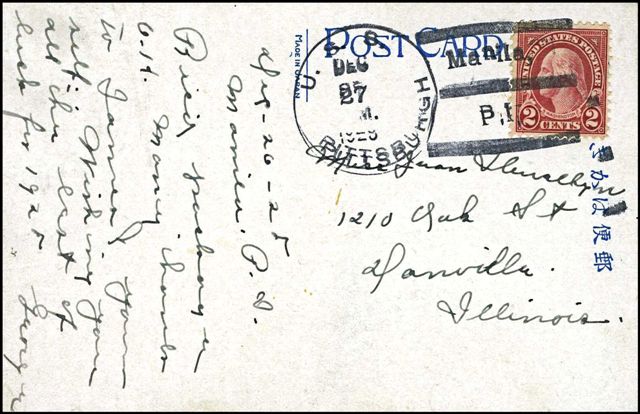 POST CARD
MADE IN JAPAN
U. S. S. PITTSBURGH
DEC
27
M.
1925
Manila
P.I.
UNITED STATES POSTAGE
2 CENTS 2
郵便はかき
Miss Llewellyn
1210 Oak St
Danville.
Illinois.
Dec-26-25
Manila. P.I.
Recd package
O.K. Many thanks
to James & your
self. Wishing you
all the best of
luck for 1925 George